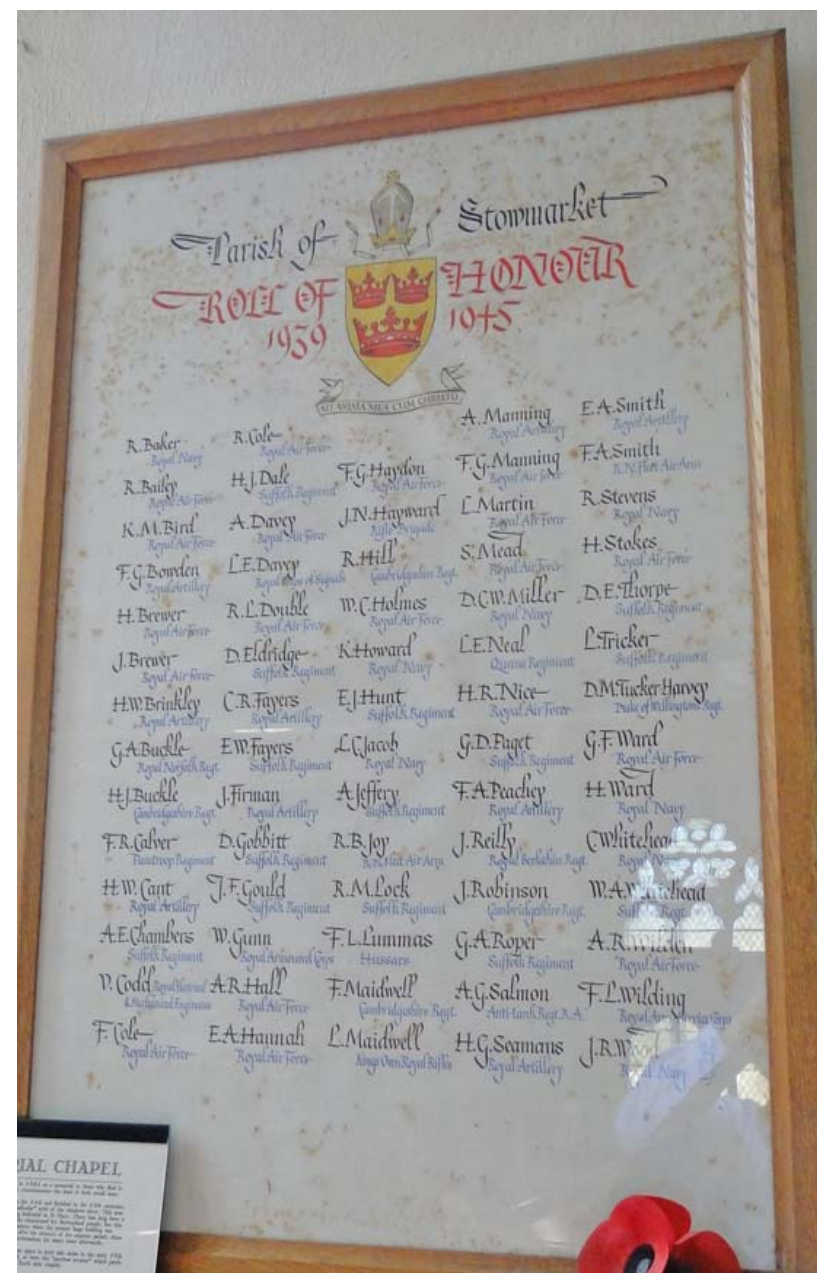 Parish of Stowmarket
ROLL OF HONOUR
1939 1945
SIT ANIMA MEA CUM CHRISTO
R. Baker
Royal Navy
R. Bailey
Royal Air Force
K.M. Bird
Royal Air Force
F.G. Bowden
Royal Artillery
H. Brewer
Royal Air Force
J. Brewer
Royal Air Force
H.W. Brinkley
Royal Artillery
G.A. Buckle
Royal Norfolk Regt.
H.J. Buckle
Cambridgeshire Regt.
F.R. Calver
Paratroop Regiment
H.W. Cant
Royal Artillery
A.E. Chambers
Suffolk Regiment
V. Codd Royal Electrical
& Mechanical Engineers
F. Cole
Royal Air Force
R. Cole
Royal Air Force
H.J. Dale
Suffolk Regiment
A. Davey
Royal Air Force
L.E. Davey
Royal Corps of Signals
R.L. Double
Royal Air Force
D. Eldridge
Suffolk Regiment
C.R. Fayers
Royal Artillery
E.W. Fayers
Suffolk Regiment
J. Firman
Royal Artillery
D. Gobbitt
Suffolk Regiment
J.F. Gould
Suffolk Regiment
W. Gunn
Royal Armoured Corps
A.R. Hall
Royal Air Force
E.A. Hannah
Royal Air Force
F.G. Haydon
Royal Air Force
J.N. Hayward
Rifle Brigade
R. Hill
Cambridgeshire Regt.
W.C. Holmes
Royal Air Force
K. Howard
Royal Navy
E.J. Hunt
Suffolk Regiment
L.C. Jacob
Royal Navy
A. Jeffery
Suffolk Regiment
R.B. Joy
R.N. Fleet Air Arm
R.M. Lock
Suffolk Regiment
F.L. Lummas
Hussars
F. Maidwell
Cambridgeshire Regt.
L. Maidwell
Kings Own Royal Rifles
A. Manning
Royal Artillery
F.G. Manning
Royal Air Force
L. Martin
Royal Air Force
S. Mead
Royal Air Force
D.C.W. Miller
Royal Navy
L.E. Neal
Queens Regiment
H.R. Nice
Royal Air Force
G.D. Paget
Suffolk Regiment
F.A. Peachey
Royal Artillery
J. Reilly
Royal Berkshire Regt.
J. Robinson
Cambridgeshire Regt.
G.A. Roper
Suffolk Regiment
A.G. Salmon
Anti-tank Regt. R.A.
H.G. Seamans
Royal Artillery
E.A. Smith
Royal Artillery
F.A. Smith
R.N. Fleet Air Arm
R. Stevens
Royal Navy
H. Stokes
Royal Air Force
D.E. Thorpe
Suffolk Regiment
L. Tricker
Suffolk Regiment
D.M. Tucker Harvey
Duke of Wellingtons Regt.
G.F. Ward
Royal Air Force
H. Ward
Royal Navy
C. Whitehead
Royal Navy
W.A. Whitehead
Suffolk Regt.
A.R. Wilden
Royal Air Force
F.L. Wilding
Royal Army Service Corps
J.R.
Royal Navy
CHAPEL